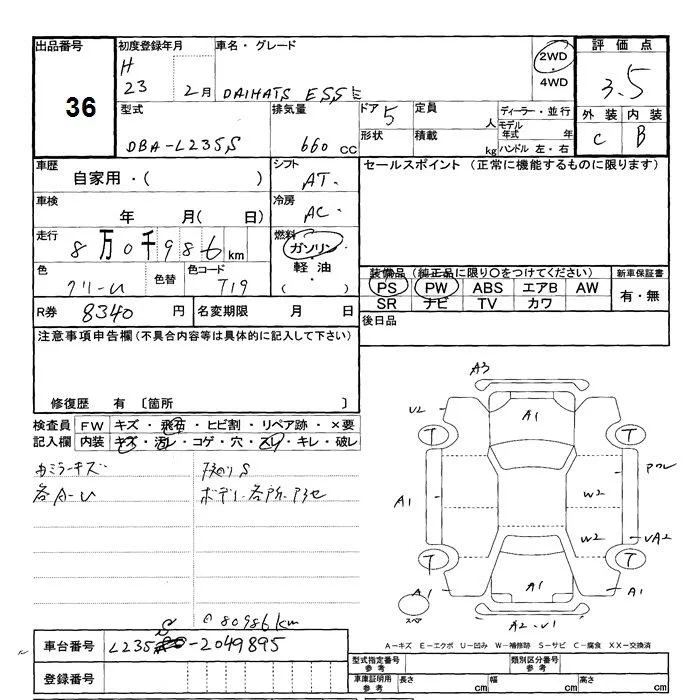 出品番号 初度登録年月 車名・グレード 2WD 評価点
36 H 23 2月 DAIHATS ESSE 4WD 3.5
型式 排気量 ドア 5 定員 人 ディーラー・並行 外装 内装
DBA-L235S 660 CC 形状 積載 kg モデル年式 年 C B
ハンドル 左・右
車歴 シフト セールスポイント (正常に機能するものに限ります)
自家用・( ) AT.
車検 年 月( 日) 冷房 AC.
走行 8万0千986km 燃料 ガソリン
色 色替 色コード T19 軽油 ( )
装備品 (純正品に限り○をつけてください) 新車保証書
PS PW ABS エアB AW 有・無
SR ナビ TV カワ
R券 8340 円 名変期限 月 日 後日品
注意事項申告欄(不具合内容等は具体的に記入して下さい)
修復歴 有 〔箇所 〕
検査員 FW キズ・飛石・ヒビ割・リペア跡・×要
記入欄 内装 キズ・汚レ・コゲ・穴・スレ・キレ・破レ
A3
U2 A1
T T
A1 W2
W2 UA2
T T
A1 A1 A1
A2-U1
@80986km
車台番号 L235S-2049895
A-キズ E-エクボ U-凹み W-補修跡 S-サビ C-腐食 XX-交換済
登録番号 型式指定番号 参考 類別区分番号 参考
車庫証明用 参考 長さ cm 幅 cm 高さ cm